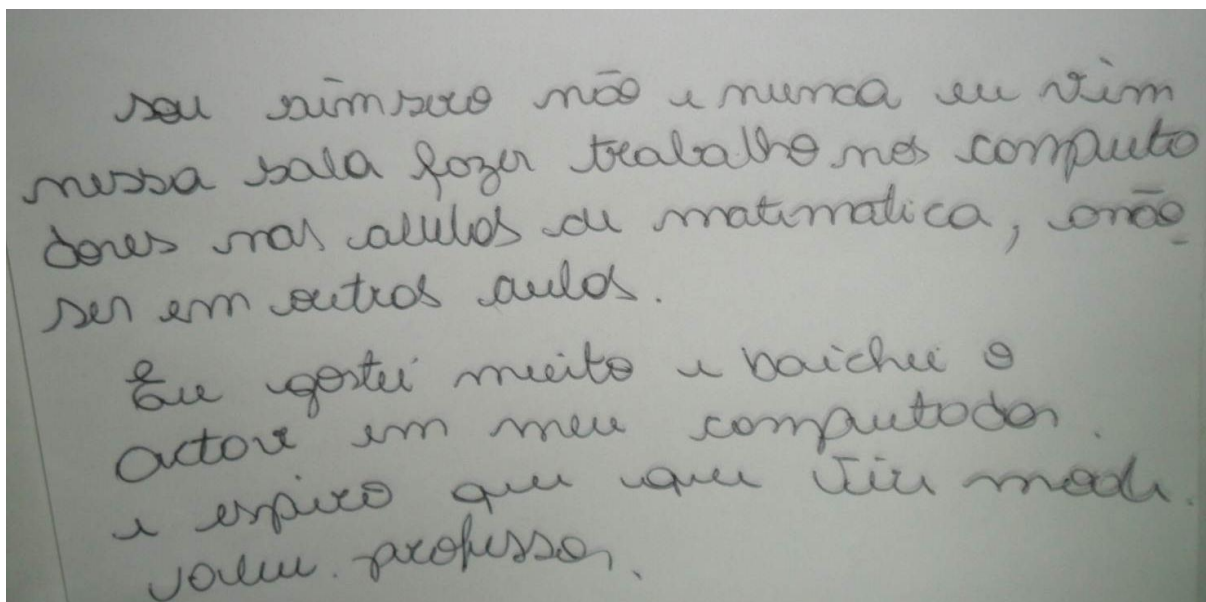 sou simsero não e nunca eu vim
nessa sala fozer trabalho nos computo
dores nas alulas de matimatica, anão
ser em outros aulas.
Eu gostei muito e baichei o
actore em meu computodor.
e espero que que vire mode.
valeu. professor.